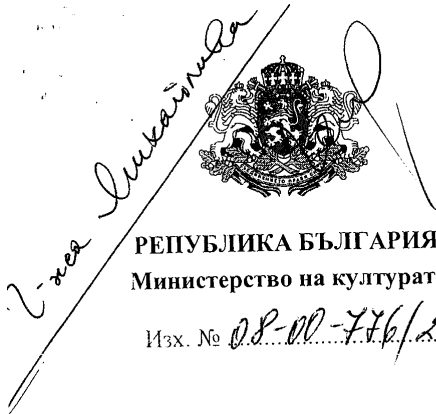 г-жа Михайлова
РЕПУБЛИКА БЪЛГАРИЯ
Министерство на културат
Изх. № 08-00-776/2